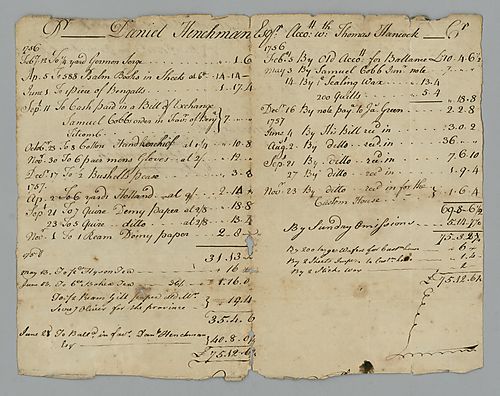 Dr Daniel Henchman Esqr Accot wth Thomas Hancock Cr
1756
Febry 12 To ¼ yard German Serge 1.6
Ap. 5 To 588 Psalm Books in Sheets at 6d 14.14
June 1 To 1 piece of Bengalls 1.17.4
Sep. 11 To Cash paid in a Bill of Exchange
Samuel Cobbs order in favr of Benj
Titcomb 7
Octobr 23 To 8 Cotton Handkerchief at 1/4 10.8
Novr 30 To 6 pair mens Gloves at 2/ 12
Decr 17 To 2 Bushells Pease 3.8
1757
Ap. 2 To 6 yards Holland at 9/ 2.14
Sep 21 To 7 Quire Demy paper at 2/8 18.8
23 To 5 Quire ditto at 2/8 13.4
Novr 1 To 1 Ream Demy paper 2.8
31.13
May 13 To Hyson Tea 16
June 13 To 6 Bohea Tea 36/ 1.16.0
To ½ Ream Gilt paper dd Mr
Oliver for the province 19.4
35.4.6
June 28 To Ballce in favr Danl Henchman
Esq 40.8.0¼
£75.12.6¼
1756
Febr 5 By Old Accott for Ballance £20.4.6½
May 3 By Samuel Cobb Jun note 7
14 By 1 Sealing Wax 13.4
200 Quills 5.4
18.8
Decr 16 By note pay to Jas Green 2.2.8
1757
June 4 By His Bill recd in 3.0.2
Augt 2 By ditto recd in 36
Sep 21 By ditto recd in 7.6.10
27 By ditto recd in 1.9.4
Novr 23 By ditto recd in for the
Custom House 1.6.4
69.8.6½
By Sundry Omissions
75.3.2¾
By 200 large Wafers for
By 2 Sheets 1.4
By 2 Sticks Wax
£75.12.6¼